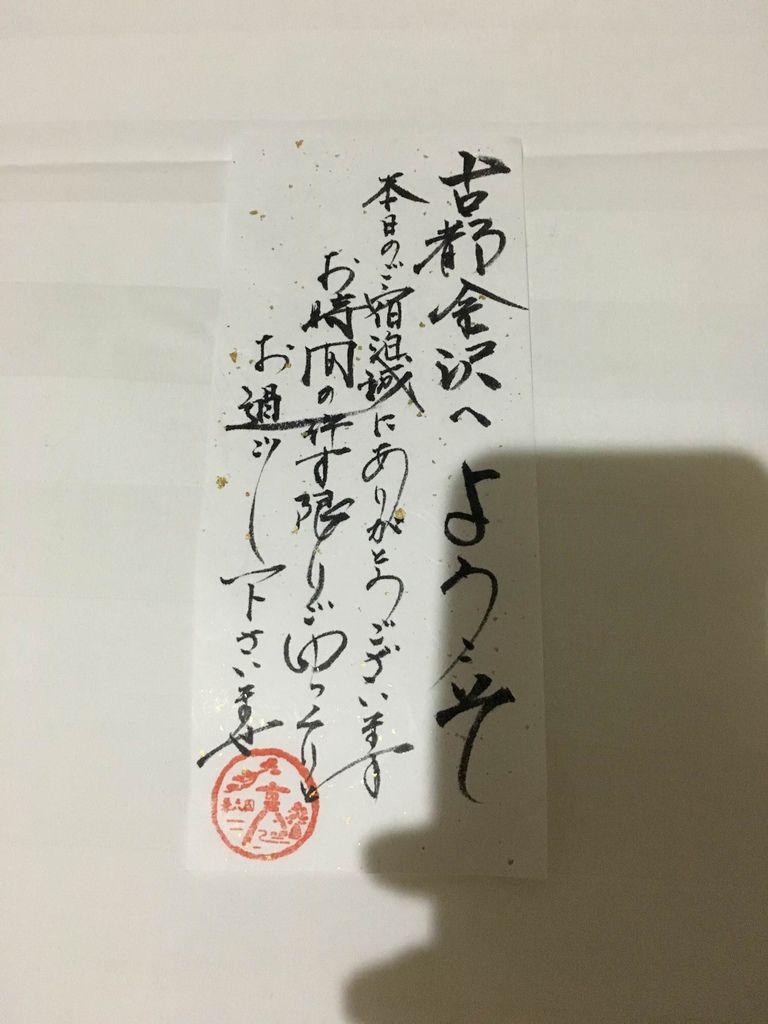 古都金沢へようこそ
本日のご宿泊誠にありがとうございます
お時間の許す限りごゆっくりと
お過ごし下さいませ
兼六園